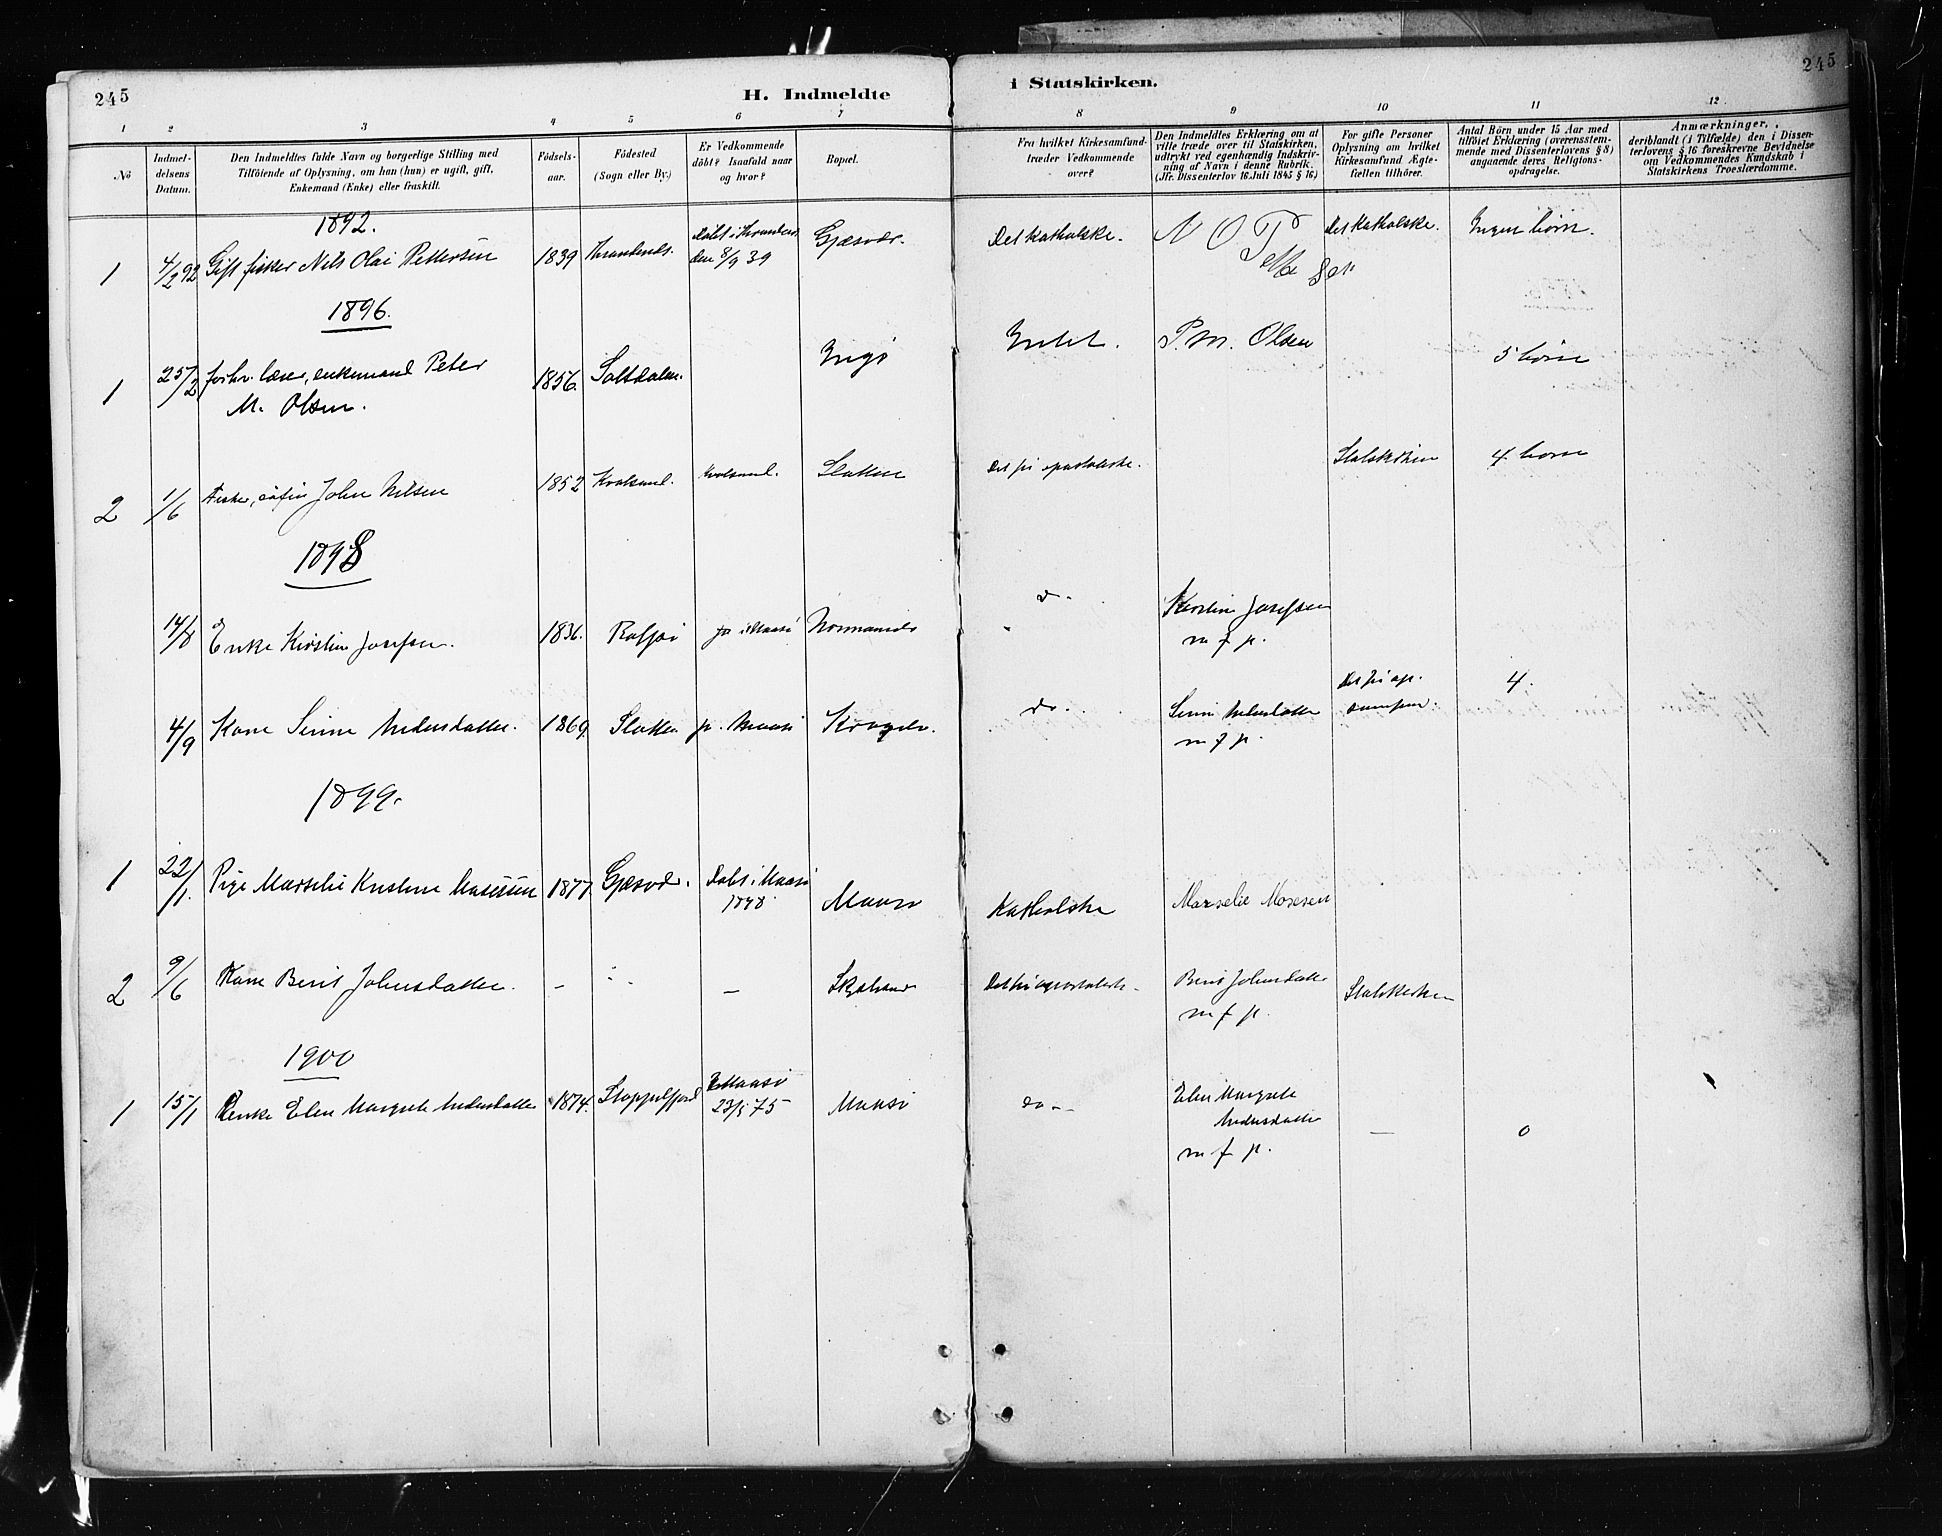 245
H. Indmeldte
i Statskirken.
245
1 2 3 4 5 6 7 8 9 10 11 12.
No
Indmel-
delsens
Datum.
Den Indmeldtes fulde Navn og borgerlige Stilling med
Tilföiende af Oplysning, om han (hun) er ugift, gift,
Enkemand (Enke) eller fraskilt.
Födsels-
aar.
Födested
(Sogn eller By.)
Er Vedkommende
döbt? Isaafald naar
og hvor?
Bopæl.
Fra hvilket Kirkesamfund
træder Vedkommende
over?
Den Indmeldtes Erklæring om at
ville træde over til Statskirken,
udtrykt ved egenhændig Indskriv-
ning af Navn i denne Rubrik.
(Jfr. Dissenterlov 16 Juli 1845 § 16)
For gifte Personer
Oplysning om hvilket
Kirkesamfund Ægte-
fællen tilhörer.
Antal Börn under 15 Aar med
tilföiet Erklæring (overensstem-
mende med Dissenterlovens § 8)
angaaende deres Religions-
opdragelse.
Anmærkninger,
deriblandt (i Tilfælde) den i Dissen-
terlovens § 16 foreskrevne Bevidnelse
om Vedkommendes Kundskab i
Statskirkens Troeslærdomme.
1892.
1 4/2 92 Gift fisker Nils Olai Pettersen 1839 Throndenes. Döbt i Throndenes den 8/9 39 Gjæsvær. Det katholske. N O P Det katholske. Ingen börn.
1896.
1 25/2 forhv. lærer, enkemand Peter
M. Olsen. 1856. Saltdalen. Ingö Intet. P. M. Olsen 5 börn
2 1/6 Fisker, söfin John Nilsen 1852 Kvalsund. Kvalsund. Slotten Det fri apostolske. Statskirken 4 börn
1898
14/8 Enke Kirstin Josefsen. 1836. Rolfsö i Maasö do - Kirstin Josefsen
m f p.
4/9 Kone Sirine Andersdatter. 1869. Slotten p. Maasö do - Sirine Andersdatter
m f p. Det fri ap. 4.
1899.
1 22/1. Pige Marselie Kristine Mosesen 1877 Gjæsvær. Döbt i Maasö
1878. Maasö Katholske Marselie Mosesen
2 9/6 Kone Berit Johnsdatter. - - Det fri apostolske - Berit Johnsdatter
m f p. Statskirken
1900
1 15/1 Enke Elen Margrete Andersdatter 1874. Stoppelfjord i Maasö
23/5 75 Maasö do - Elen Margrete
Andersdatter
m f p. - 0